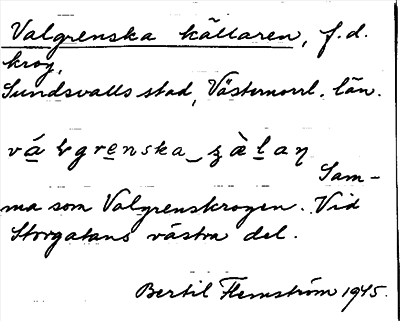 Valgrenska källaren, f.d.
krog,
Sundsvalls stad, Västernorrl. län.
Sam-
ma som Valgrenskrogen. Vid
Storgatans västra del.
Bertil Flemström 1945.